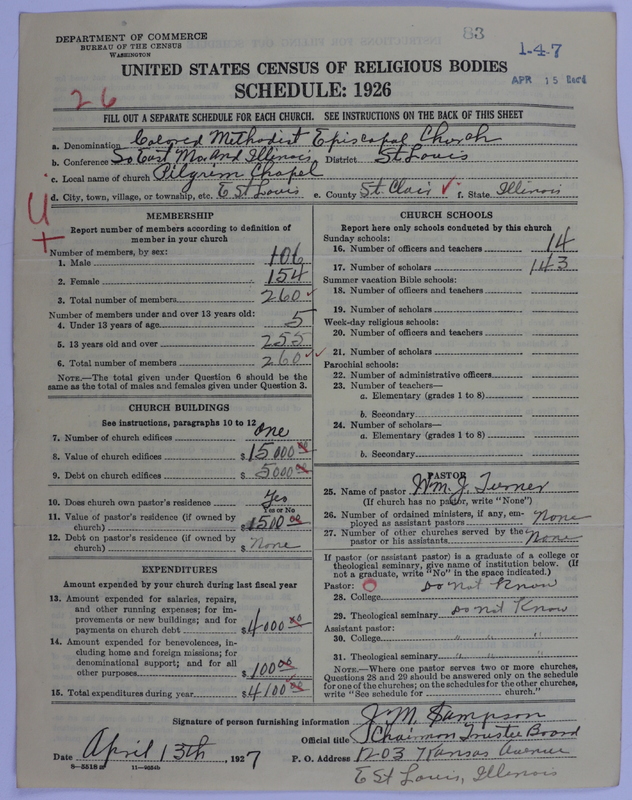 DEPARTMENT OF COMMERCE
BUREAU OF THE CENSUS
WASHINGTON
83
1-4-7
APR 15 Recd
26
UNITED STATES CENSUS OF RELIGIOUS BODIES
SCHEDULE: 1926
FILL OUT A SEPARATE SCHEDULE FOR EACH CHURCH. SEE INSTRUCTIONS ON THE BACK OF THIS SHEET
a. Denomination Colored Methodist Episcopal Church
b. Conference So East Mo. And Illinois District St Louis
c. Local name of church Pilgrim Chapel
d. City, town, village, or township, etc. E St Louis e. County St. Clair ✓ f. State Illinois
U
+
MEMBERSHIP
Report number of members according to definition of
member in your church
Number of members, by sex:
1. Male 106
2. Female 154
3. Total number of members 260 ✓
Number of members under and over 13 years old:
4. Under 13 years of age 5
5. 13 years old and over 255
6. Total number of members 260 ✓✓
NOTE.—The total given under Question 6 should be the
same as the total of males and females given under Question 3.
CHURCH BUILDINGS
See instructions, paragraphs 10 to 12
7. Number of church edifices one
8. Value of church edifices $15000 00
9. Debt on church edifices $5000 00
10. Does church own pastor's residence Yes
Yes or No
11. Value of pastor's residence (if owned by
church) $1500 00
12. Debt on pastor's residence (if owned by
church) $None
EXPENDITURES
Amount expended by your church during last fiscal year
13. Amount expended for salaries, repairs,
and other running expenses; for im-
provements or new buildings; and for
payments on church debt $4000 00
14. Amount expended for benevolences, in-
cluding home and foreign missions; for
denominational support; and for all
other purposes $100 00
15. Total expenditures during year $4100 00
CHURCH SCHOOLS
Report here only schools conducted by this church
Sunday schools:
16. Number of officers and teachers 14
17. Number of scholars 143
Summer vacation Bible schools:
18. Number of officers and teachers
19. Number of scholars
Week-day religious schools:
20. Number of officers and teachers
21. Number of scholars
Parochial schools:
22. Number of administrative officers
23. Number of teachers—
a. Elementary (grades 1 to 8)
b. Secondary
24. Number of scholars—
a. Elementary (grades 1 to 8)
b. Secondary
PASTOR
25. Name of pastor Wm. J. Turner
(If church has no pastor, write "None")
26. Number of ordained ministers, if any, em-
ployed as assistant pastors None
27. Number of other churches served by the
pastor or his assistants None
If pastor (or assistant pastor) is a graduate of a college or
theological seminary, give name of institution below. (If
not a graduate, write "No" in the space indicated.)
Pastor:
28. College Do not Know
29. Theological seminary Do not Know
Assistant pastor:
30. College " " "
31. Theological seminary " " "
NOTE.—Where one pastor serves two or more churches,
Questions 28 and 29 should be answered only on the schedule
for one of the churches; on the schedules for the other churches,
write "See schedule for church."
Signature of person furnishing information J. M. Sampson
Official title Chairman Trustee Board
Date April 13th, 1927 P. O. Address 1203 Kansas Avenue
8—5518 11—9054b
E St Louis, Illinois